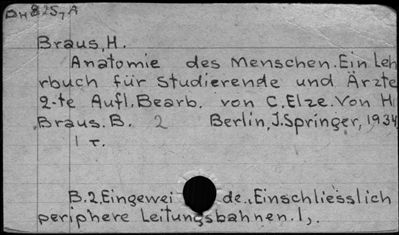 Braus, H.
Anatomie des Menschen. Ein Leh
rbuch für Studierende und Ärzte
2-te Aufl. Bearb. von C. Elze. Von H
Braus. B. 2 Berlin, J. Springer, 1934
1 т.
B. 2. Eingewei de. Einschliesslich
periphere Leitungsbahnen. 1,.